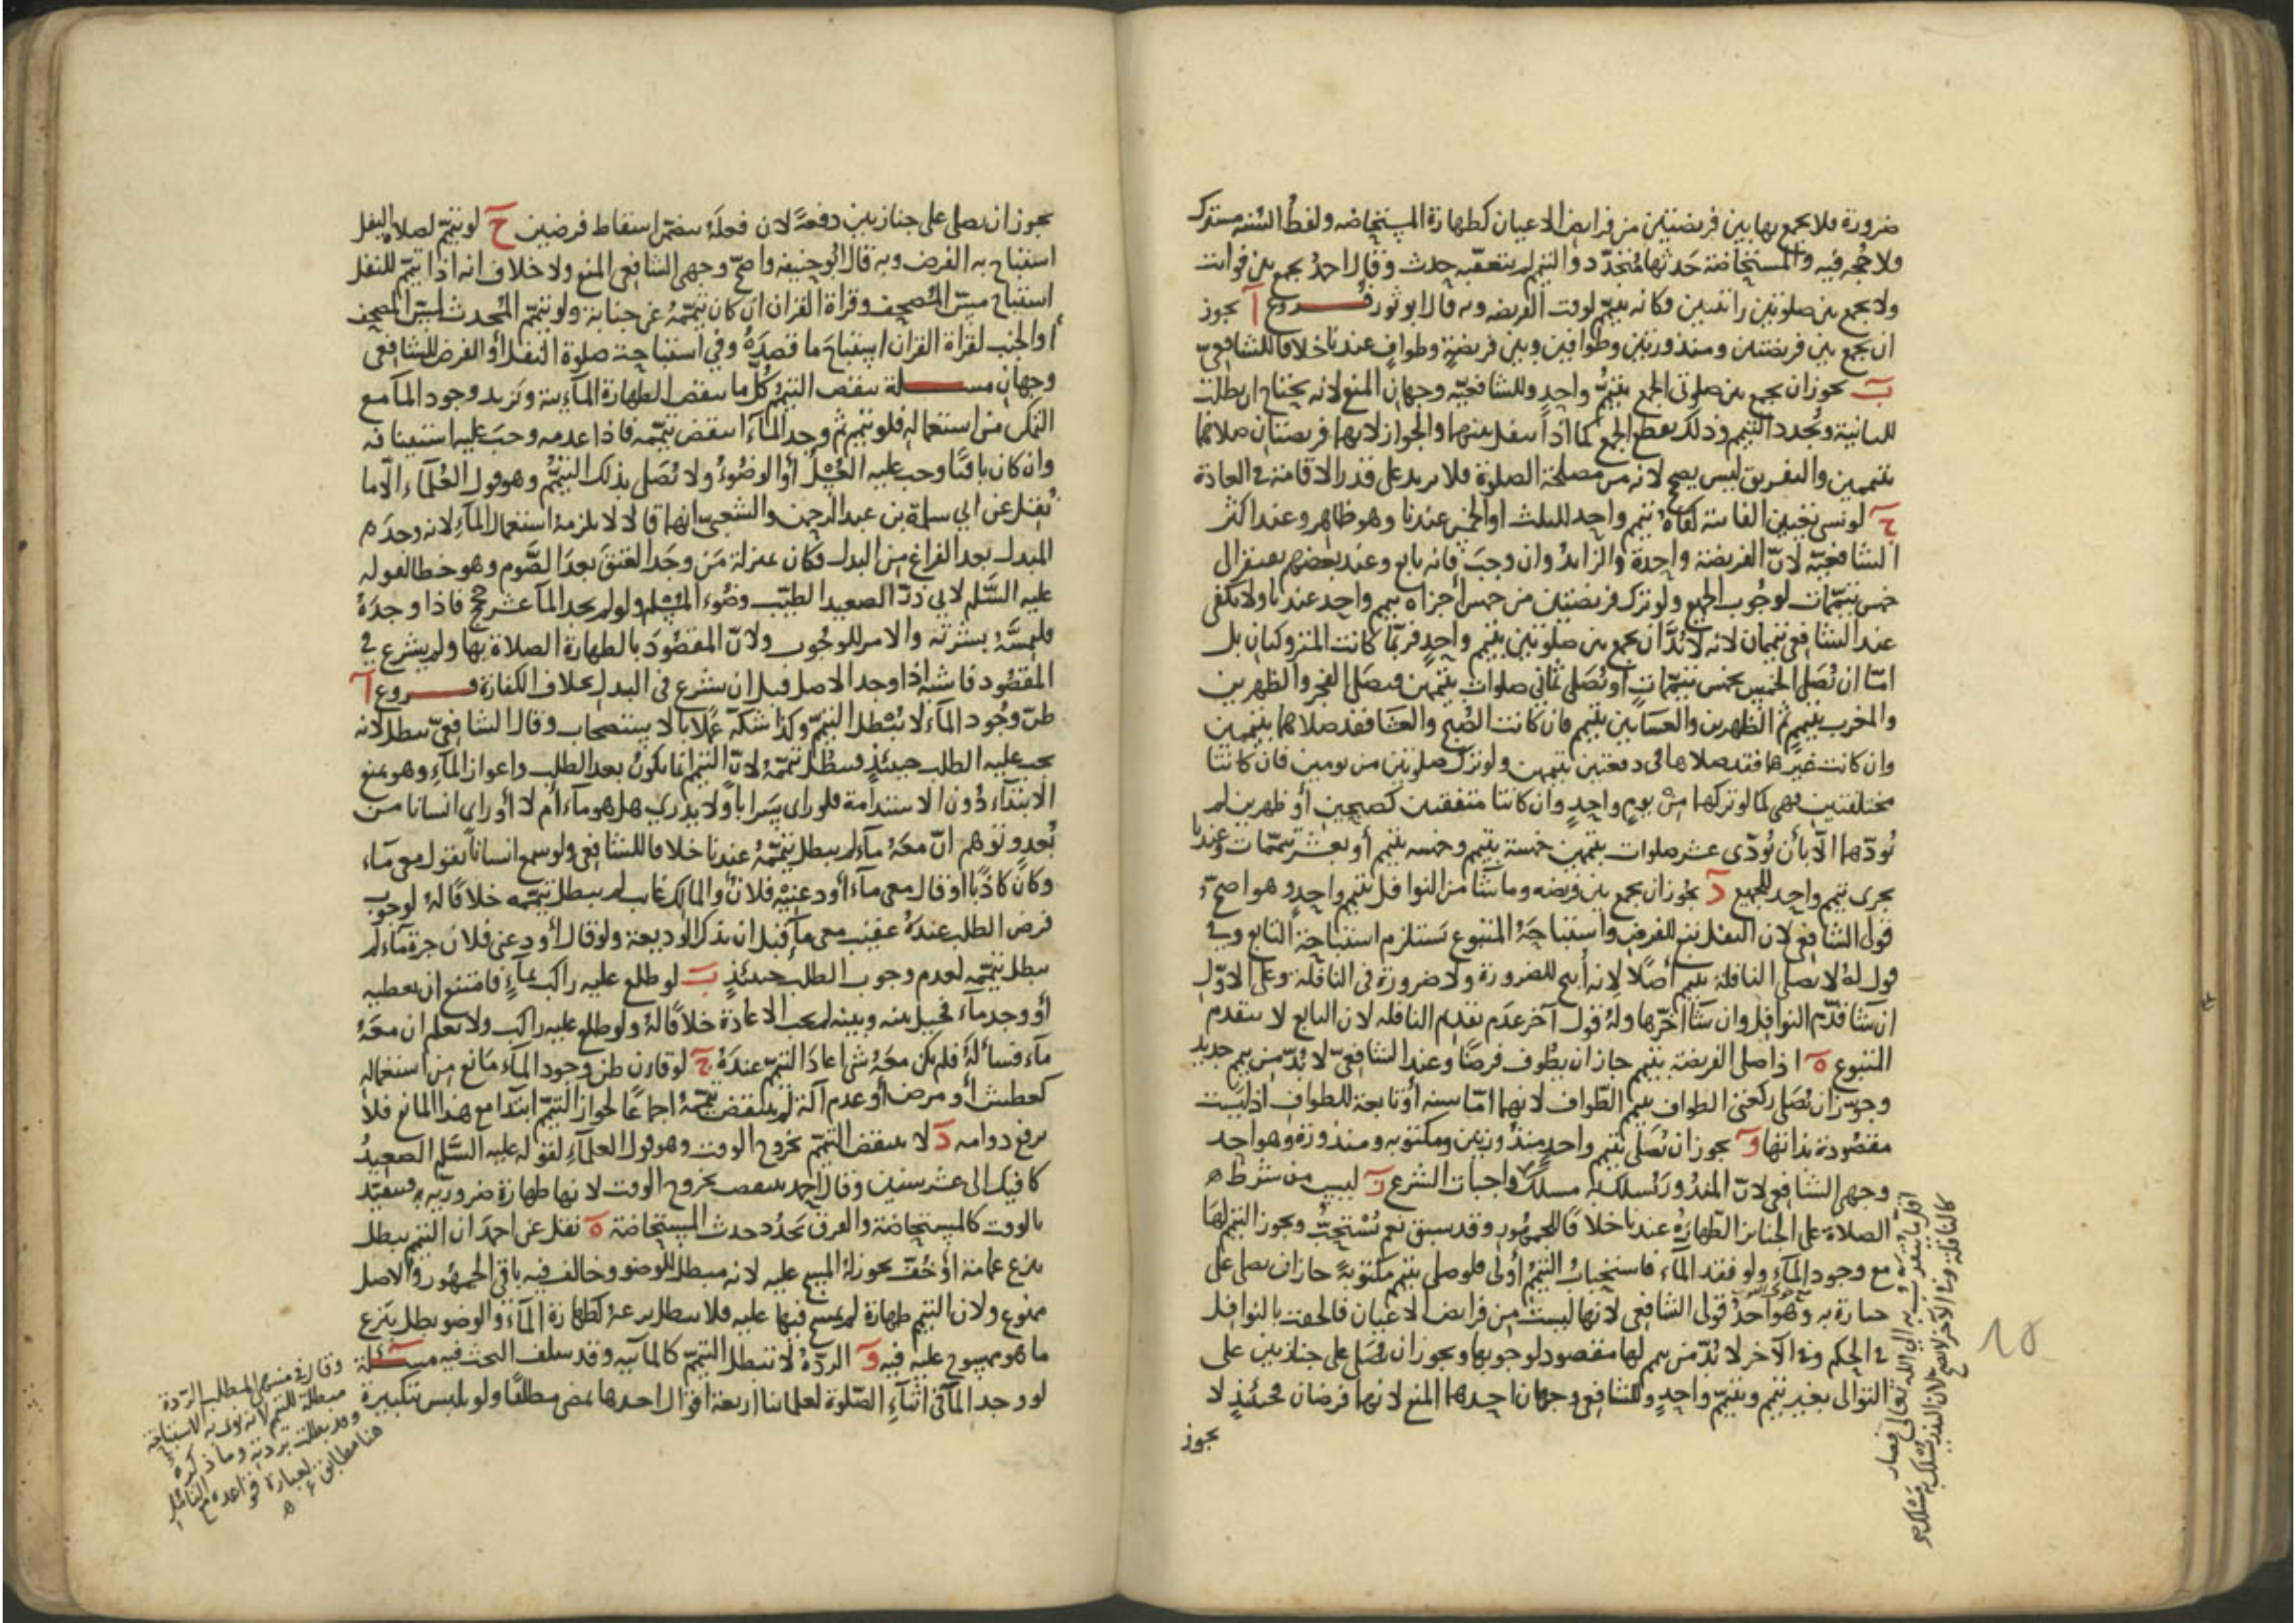 ضرورة فلا يجمع بها بين فريضتين من فرايض الاعيان كطهارة المستحاضه ولفظ السنه مشترك
ولا حجه فيه والمستحاضة حدثها متجدد والتيمم لم يتعقبه حدث وقال احمد يجمع بين فوايت
ولا يجمع بين صلوتين راتبتين وكانه تيمم لوقت الفريضه وبه قال ابو ثور فروع آ يجوز
ان يجمع بين فريضتين ومنذورتين وطوافين وبين فريضة وطواف عندنا خلافا للشافعي
ب يجوز ان يجمع بين صلوتي الجمع بتيمم واحد وللشافعيه وجهان المنع لانه يحتاج ان يطلب
للثانية ويجدد التيمم وذلك يقطع الجمع كما اذا تنفل بينهما والجواز لانهما فريضتان صلاهما
بتيممين والتفريق ليس يصح لانه من مصلحة الصلوة فلا يزيد على قدر الاقامة في العادة
ج لو نسي تعيين الفائتة كفاه تيمم واحد للثلث او الخمس عندنا وهو ظاهر وعند اكثر
الشافعية لان الفريضة واحدة والزايد وان وجب فانه تابع وعند بعضهم يفتقر الى
خمس تيممات لوجوب الجميع ولو ترك فريضتين من خمس اجزاه تيمم واحد عندنا ولا يكفي
عند الشافعي تيممان لانه لا بد ان يجمع بين صلوتين بتيمم واحد فربما كانت المتروكتان بل
اما ان يصلي الخمس بخمس تيممات او يصلي ثماني صلوات بتيممين فيصلي الفجر والظهرين
والمغرب بتيمم ثم الظهرين والعشاين بتيمم فان كانت الصبح والعشا فقد صلاهما بتيممين
وان كانت غيرهما فقد صلاها في دفعتين بتيممين ولو ترك صلوتين من يومين فان كانتا
مختلفتين فهي كما لو تركهما من يوم واحد وان كانتا متفقتين كصبحين أو ظهرين لم
يؤدهما الا بأن يؤدي عشر صلوات بتيممين خمسة بتيمم وخمسه بتيمم أو بعشر تيممات وعندنا
يجزى تيمم واحد للجميع د يجوز ان يجمع بين فريضه وما شا من النوافل بتيمم واحد وهو اصح
قولى الشافعي لان النفل تبع للفرض واستباحة المتبوع تستلزم استباحة التابع وفي
قول له لا يصلي النافلة بتيمم أصلا لانه أبيح للضرورة ولا ضرورة في النافلة وعلى الاول
ان شا قدم النوافل وان شا اخرها وله قول آخر عدم تقديم النافله لان التابع لا يتقدم
المتبوع ه اذا صلى الفريضة بتيمم جاز ان يطوف فرضا وعند الشافعي لا بد من تيمم جديد
وجوز ان يصلي ركعتي الطواف بتيمم الطواف لانهما اما سنه أو تابعة للطواف اذ ليست
مقصودة بذاتها و يجوز ان يصلى بتيمم واحد منذورتين ومكتوبه ومنذورة وهو احد
وجهي الشافعي لان المنذور يسلك به مسلك واجبات الشرع ز ليس من شرط
الصلاة على الجنايز الطهارة عندنا خلافا للجمهور وقد سبق نعم يستحب ويجوز التيمم لها
مع وجود الماء ولو فقد الماء فاستحباب التيمم أولى فلو صلى بتيمم مكتوبة جاز ان يصلي على
جنازة به وهو احد قولى الشافعي لانها ليست من فرايض الاعيان فالحقت بالنوافل
في الحكم وفي الآخر لا بد من تيمم لها مقصود لوجوبها ويجوز ان يصلى على جنازتين على
التوالى بغير تيمم وبتيمم واحد وللشافعي وجهان احدهما المنع لانهما فرضان فحينئذ لا
يجوز
كالنافلة وفي الآخر لا يصح لان النذر يسلك به مسلك
10
يجوز ان يصلي على جنازتين دفعة لان فعله يتضمن اسقاط فرضين ح لو تيمم لصلاه النفل
استباح به الفرض وبه قال ابو حنيفه واصح وجهي الشافعي المنع ولا خلاف انه اذا تيمم للنفل
استباح مس المصحف وقراة القران ان كان تيممه عن جنابة ولو تيمم المحدث لمس المصحف
أو الجنب لقراة القران استباح ما قصده وفي استباحة صلوة النفل أو الفرض للشافعي
وجهان مسئلة ينقض التيمم كل ما ينقض الطهارة المآئية ويزيد وجود المآ مع
التمكن من استعماله فلو تيمم ثم وجد المآء انتقض تيممه فاذا عدمه وجب عليه استينافه
وان كان باقيا وجب عليه الغسل أو الوضوء ولا يصلى بذلك التيمم وهو قول العلماء الا ما
نقل عن ابي سلمة بن عبد الرحمن والشعبي انهما قالا لا يلزمه استعمال المآء لانه وجد
المبدل بعد الفراغ من البدل فكان بمنزلة من وجد العتق بعد الصوم وهو خطا لقوله
عليه السلم لابي ذر الصعيد الطيب وضوء المسلم ولو لم يجد المآ عشر حجج فاذا وجده
فليمسه بشرته والامر للوجوب ولان المقصود بالطهارة الصلاة بها ولم يشرع في
المقصود فاشبه اذا وجد الاصل قبل ان يشرع في البدل بخلاف الكفارة فروع آ
ظن وجود المآء لا يبطل التيمم وكذا شكه عملا بالاستصحاب وقال الشافعي يبطل لانه
يجب عليه الطلب حينئذ فيبطل تيممه لان التيمم انما يكون بعد الطلب واعواز المآء وهو يمنع
الابتداء دون الاستدامة فلو راى سرابا ولا يدري هل هو مآء أم لا أو راى انسانا من
بعد وتوهم ان معه مآء لم يبطل تيممه عندنا خلافا للشافعي ولو سمع انسانا يقول معي مآء
وكان كاذبا او قال معي مآء أودعنيه فلان والمالك غايب لم يبطل تيممه خلافا له لوجوب
فرض الطلب عنده عقيب معي مآ قبل ان يذكر الوديعة ولو قال أودعني فلان جرة مآء لم
يبطل تيممه لعدم وجوب الطلب حينئذ ب لو طلع عليه راكب بمآء فامتنع ان يعطيه
أو وجد مآء فحيل بينه وبينه لم تجب الاعادة خلافا له ولو طلع عليه راكب ولا يعلم ان معه
مآء فسأله فلم يكن معه شى اعاد التيمم عنده ج لو قارن ظن وجود المآء مانع من استعماله
كعطش أو مرض أو عدم آلة لم ينتقض تيممه اجماعا لجواز التيمم ابتدا مع هذا المانع فلا
يرفع دوامه د لا ينتقض التيمم بخروج الوقت وهو قول العلمآء لقوله عليه السلم الصعيد
كافيك الى عشر سنين وقال احمد ينتقض بخروج الوقت لانها طهارة ضروريه فتتقيد
بالوقت كالمستحاضة والفرق تجدد حدث المستحاضة ه نقل عن احمد ان التيمم يبطل
بنزع عمامة أو خف يجوز له المسح عليه لانه مبطل للوضو وخالف فيه باقي الجمهور والاصل
ممنوع ولان التيمم طهارة لم يمسح فيها عليه فلا يبطل بنزعه كطهارة المآء والوضو يبطل بنزع
ما هو ممسوح عليه فيه و الردة لا تبطل التيمم كالمآئيه وقد سلف البحث فيه مسئلة
لو وجد المآ في اثناء الصلوة لعلمائنا اربعة اقوال احدها يمضي مطلقا ولو تلبس بتكبيرة
وقال في منتهى المطلب الردة
مبطلة للتيمم لانه نوى به الاستباحة
وقد بطلت بردته وما ذكره
هنا مطابق لعبارة قواعده